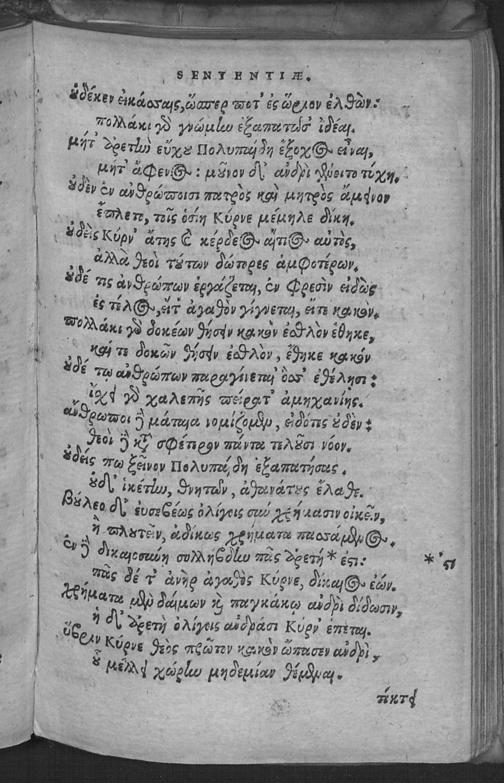 SENTENTIÆ.
οὐδέ κεν εἰκάσσαις, ὥσπερ ποτ' ἐς ὥριον ἐλθών:
πολλάκι γὸ γνώμην ἐξαπατῶσ' ἰδέαι.
μήτ' ἀρετὴν εὔχου Πολυπαΐδη ἔξοχος εἶναι,
μήτ' ἄφενος: μοῦνον δ' ἀνδρὶ γένοιτο τύχη.
οὐδὲν ἐν ἀνθρώποισι πατρὸς καὶ μητρὸς ἄμεινον
ἔπλετο, τοῖς ὁσίη Κύρνε μέμηλε δίκη.
οὐδεὶς Κύρν' ἄτης καὶ κέρδεος αἴτιος αὐτὸς,
ἀλλὰ θεοὶ τούτων δώτορες ἀμφοτέρων.
οὐδέ τις ἀνθρώπων ἐργάζεται, ἐν φρεσὶν εἰδὼς
ἐς τέλος, εἴτ' ἀγαθὸν γίγνεται, εἴτε κακόν.
πολλάκι γὸ δοκέων θήσειν κακὸν ἐσθλὸν ἔθηκε,
καί τε δοκῶν θήσειν ἐσθλὸν, ἔθηκε κακόν
οὐδέ τῳ ἀνθρώπων παραγίνεται ὅσσ' ἐθέλησι:
ἴσχει γὸ χαλεπῆς πείρατ' ἀμηχανίης.
ἄνθρωποι δὲ μάταια νομίζομεν, εἰδότες οὐδέν:
θεοὶ δὲ κατὰ σφέτερον πάντα τελοῦσι νόον.
οὐδείς πω ξεῖνον Πολυπαΐδη ἐξαπατήσας.
οὐδ' ἱκέτην, θνητῶν, ἀθανάτους ἔλαθε.
Βούλεο δ' εὐσεβέως ὀλίγοις σὺν χρήμασιν οἰκεῖν,
ἢ πλουτεῖν, ἀδίκως χρήματα πασάμενος.
ἐν δὲ δικαιοσύνη συλλήβδην πᾶς ἀρετή * ἐστι: * 'στ
πᾶς δέ τ' ἀνὴρ ἀγαθὸς Κύρνε, δίκαιος ἐών.
χρήματα μὲν δαίμων καὶ παγκάκῳ ἀνδρὶ δίδωσιν,
ἡ δ' ἀρετὴ ὀλίγοις ἀνδράσι Κύρν' ἕπεται.
ὕβριν Κύρνε θεὸς πρῶτον κακὸν ὤπασεν ἀνδρὶ,
οὗ μέλλει χώρην μηδεμίαν θέμεναι.
πίκτει